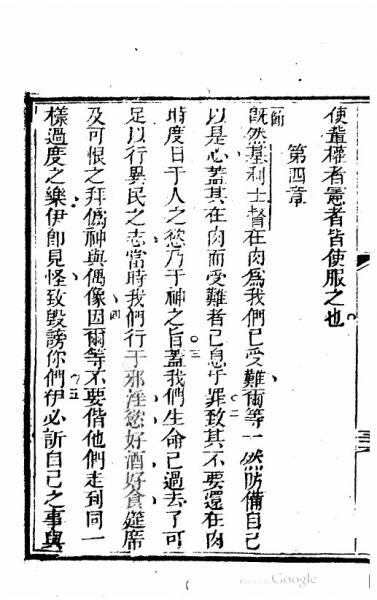 使輩權者憲者皆使服之也
第四章
節
既然基利士督在肉爲我們已受難爾等一然防備自己
以是心蓋其在肉而受難者已息乎罪致其不要還在肉
二
時度日于人之慾乃于神之旨蓋我們生命已過去了可
三
足以行異民之志當時我們行于邪淫慾好酒好食筵席
及可恨之拜僞神與偶像因爾等不要偕他們走到同一
四
樣過度之樂伊卽見怪致毀謗你們伊必訴自己之事與
五
Google